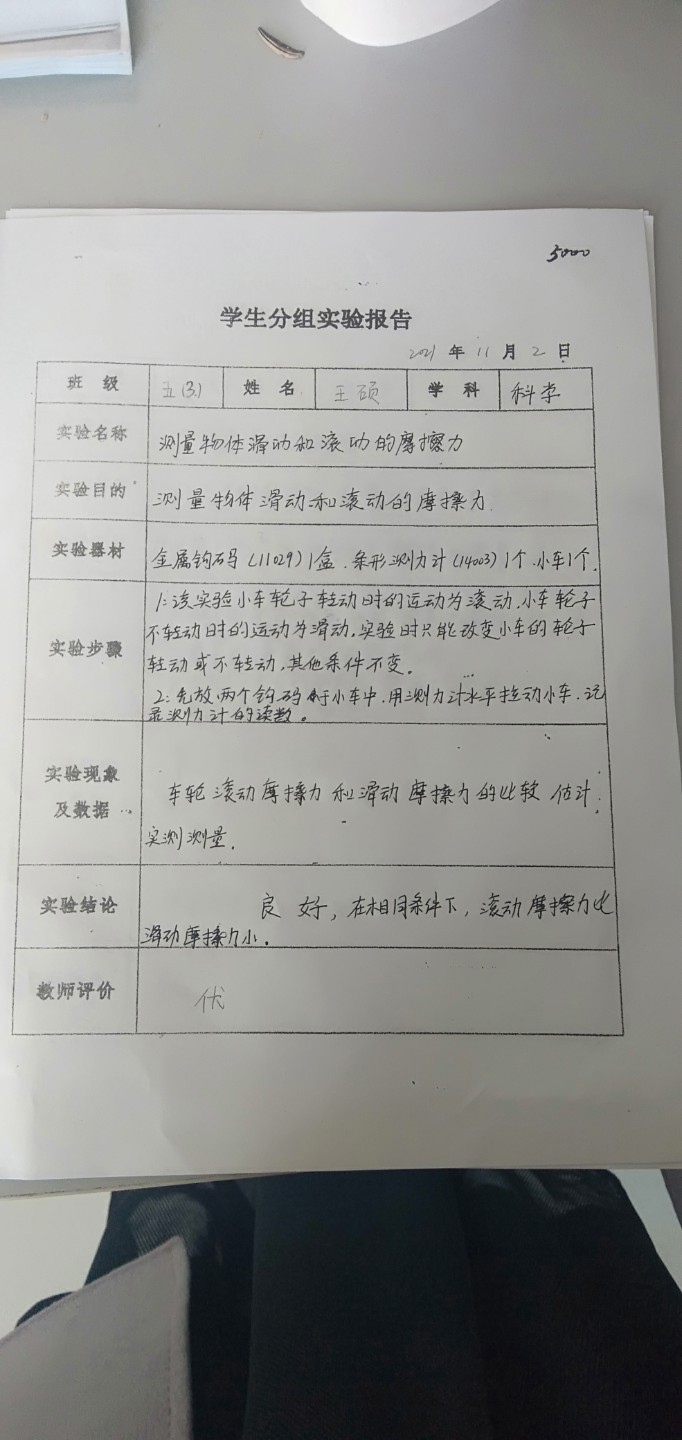 5000
学生分组实验报告
2021 年 11 月 2 日
班 级 五(3) 姓 名 王硕 学 科 科学
实验名称 测量物体滑动和滚动的摩擦力
实验目的 测量物体滑动和滚动的摩擦力
实验器材 金属钩码(11029)1盒.条形测力计(14003)1个.小车1个.
1:该实验小车轮子转动时的运动为滚动,小车轮子
不转动时的运动为滑动,实验时只能改变小车的轮子
实验步骤
转动或不转动,其他条件不变。
2:先放两个钩码于小车中.用测力计水平拉动小车.记
录测力计的读数。
实验现象
及数据
车轮滚动摩擦力和滑动摩擦力的比较 估计.
实测测量.
实验结论 良好,在相同条件下,滚动摩擦力比
滑动摩擦力小.
教师评价 伏